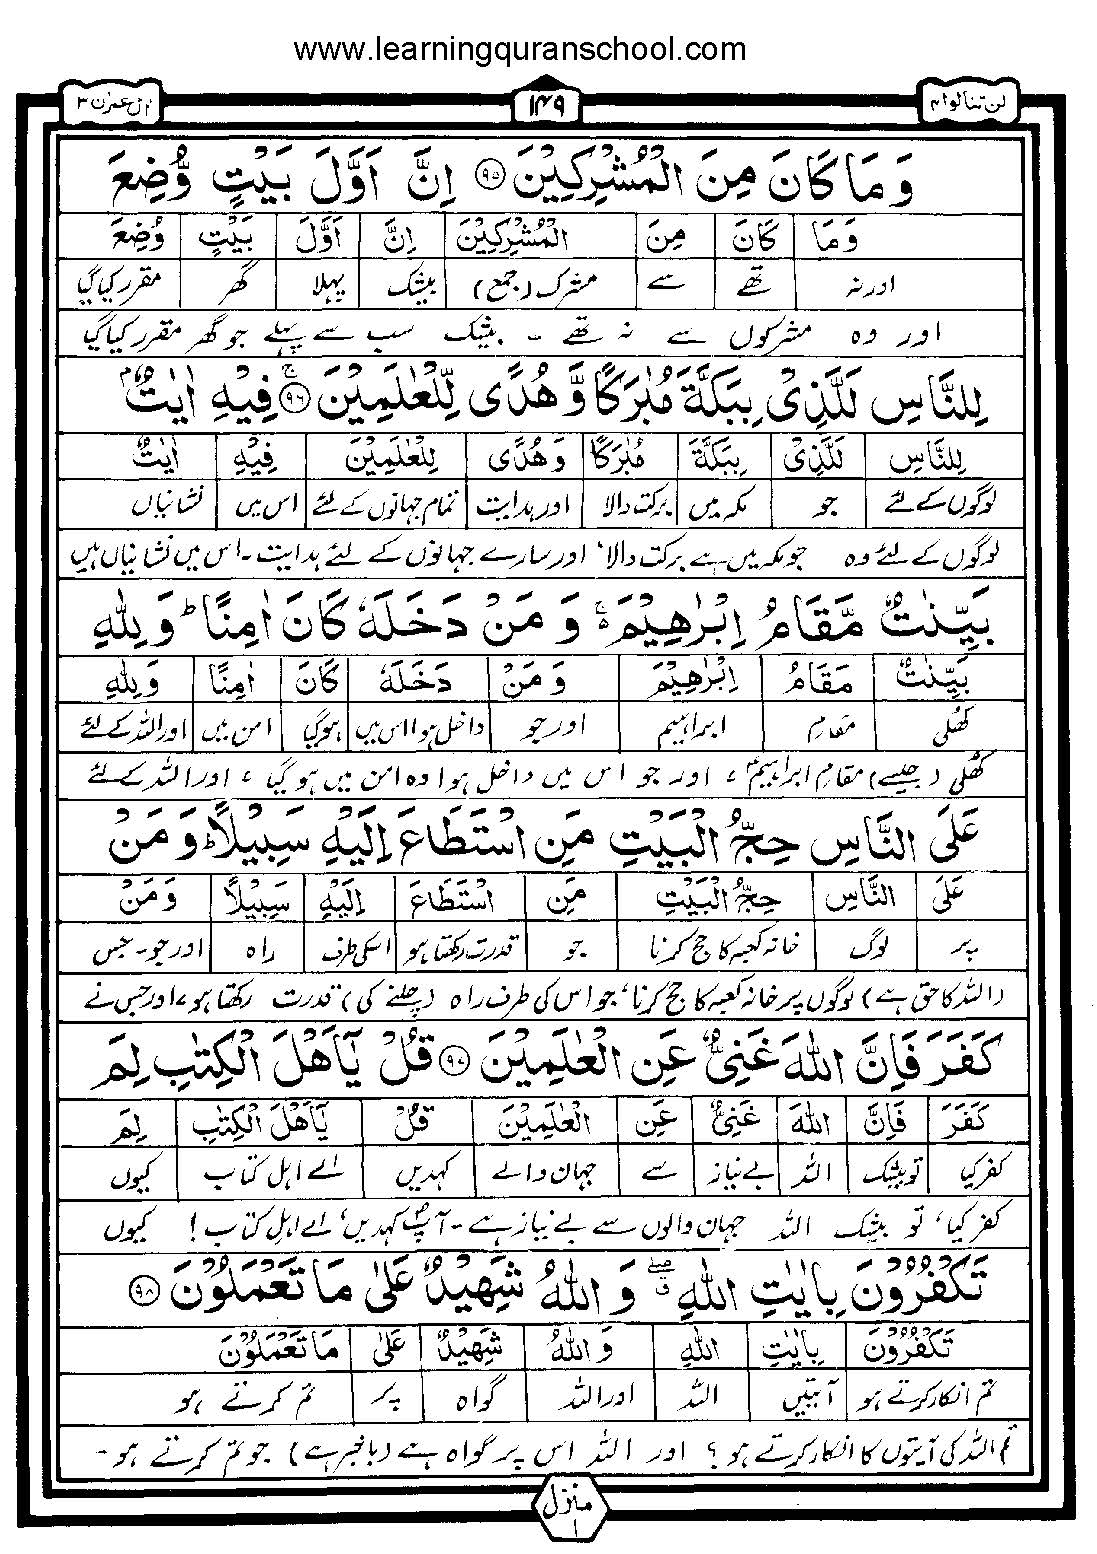 www.learningquranschool.com
لن تنالوا ٤
١٤٩
اٰل عمرٰن ٣
وَمَا كَانَ مِنَ الْمُشْرِكِيْنَ ﴿٩٥﴾ اِنَّ اَوَّلَ بَيْتٍ وُّضِعَ
وَمَا كَانَ مِنَ الْمُشْرِكِيْنَ اِنَّ اَوَّلَ بَيْتٍ وُضِعَ
اور نہ تھے سے مشرک (جمع) بیشک پہلا گھر مقرر کیا گیا
اور وہ مشرکوں سے نہ تھے ۔ بیشک سب سے پہلے جو گھر مقرر کیا گیا
لِلنَّاسِ لَلَّذِىْ بِبَكَّةَ مُبٰرَكًا وَّهُدًى لِّلْعٰلَمِيْنَ ﴿٩٦﴾ فِيْهِ اٰيٰتٌۢ
لِلنَّاسِ لَلَّذِىْ بِبَكَّةَ مُبٰرَكًا وَهُدًى لِلْعٰلَمِيْنَ فِيْهِ اٰيٰتٌ
لوگوں کے لئے جو مکہ میں برکت والا اور ہدایت تمام جہانوں کے لئے اس میں نشانیاں
لوگوں کے لئے وہ جو مکہ میں ہے برکت والا، اور سارے جہانوں کے لئے ہدایت ۔ اس میں نشانیاں ہیں
بَيِّنٰتٌ مَّقَامُ اِبْرٰهِيْمَ ۚ وَ مَنْ دَخَلَهٗ كَانَ اٰمِنًا ؕ وَلِلّٰهِ
بَيِّنٰتٌ مَقَامُ اِبْرٰهِيْمَ وَمَنْ دَخَلَهٗ كَانَ اٰمِنًا وَلِلّٰهِ
کھلی مقامِ ابراہیم اور جو داخل ہوا اس میں ہوگیا امن میں اور اللہ کے لئے
کھلی (جیسے) مقامِ ابراہیمؑ، اور جو اس میں داخل ہوا وہ امن میں ہو گیا، اور اللہ کے لئے
عَلَى النَّاسِ حِجُّ الْبَيْتِ مَنِ اسْتَطَاعَ اِلَيْهِ سَبِيْلًا ؕ وَ مَنْ
عَلَى النَّاسِ حِجُّ الْبَيْتِ مَنِ اسْتَطَاعَ اِلَيْهِ سَبِيْلًا وَمَنْ
پر لوگ خانہ کعبہ کا حج کرنا جو قدرت رکھتا ہو اسکی طرف راہ اور جو۔ جس
(اللہ کا حق ہے) لوگوں پر خانہ کعبہ کا حج کرنا، جو اس کی طرف راہ (چلنے کی) قدرت رکھتا ہو، اور جس نے
كَفَرَ فَاِنَّ اللّٰهَ غَنِىٌّ عَنِ الْعٰلَمِيْنَ ﴿٩٧﴾ قُلْ يٰۤاَهْلَ الْكِتٰبِ لِمَ
كَفَرَ فَاِنَّ اللّٰهَ غَنِىٌّ عَنِ الْعٰلَمِيْنَ قُلْ يٰۤاَهْلَ الْكِتٰبِ لِمَ
کفر کیا تو بیشک اللہ بے نیاز سے جہان والے کہدیں اے اہل کتاب کیوں
کفر کیا، تو بیشک اللہ جہان والوں سے بے نیاز ہے ۔ آپؐ کہدیں، اے اہلِ کتاب! کیوں
تَكْفُرُوْنَ بِاٰيٰتِ اللّٰهِ ۖ ق وَ اللّٰهُ شَهِيْدٌ عَلٰى مَا تَعْمَلُوْنَ ﴿٩٨﴾
تَكْفُرُوْنَ بِاٰيٰتِ اللّٰهِ وَ اللّٰهُ شَهِيْدٌ عَلٰى مَا تَعْمَلُوْنَ
تم انکار کرتے ہو آیتیں اللہ اور اللہ گواہ پر تم کرتے ہو
تم اللہ کی آیتوں کا انکار کرتے ہو؟ اور اللہ اس پر گواہ ہے (باخبر ہے) جو تم کرتے ہو ۔
منزل ١